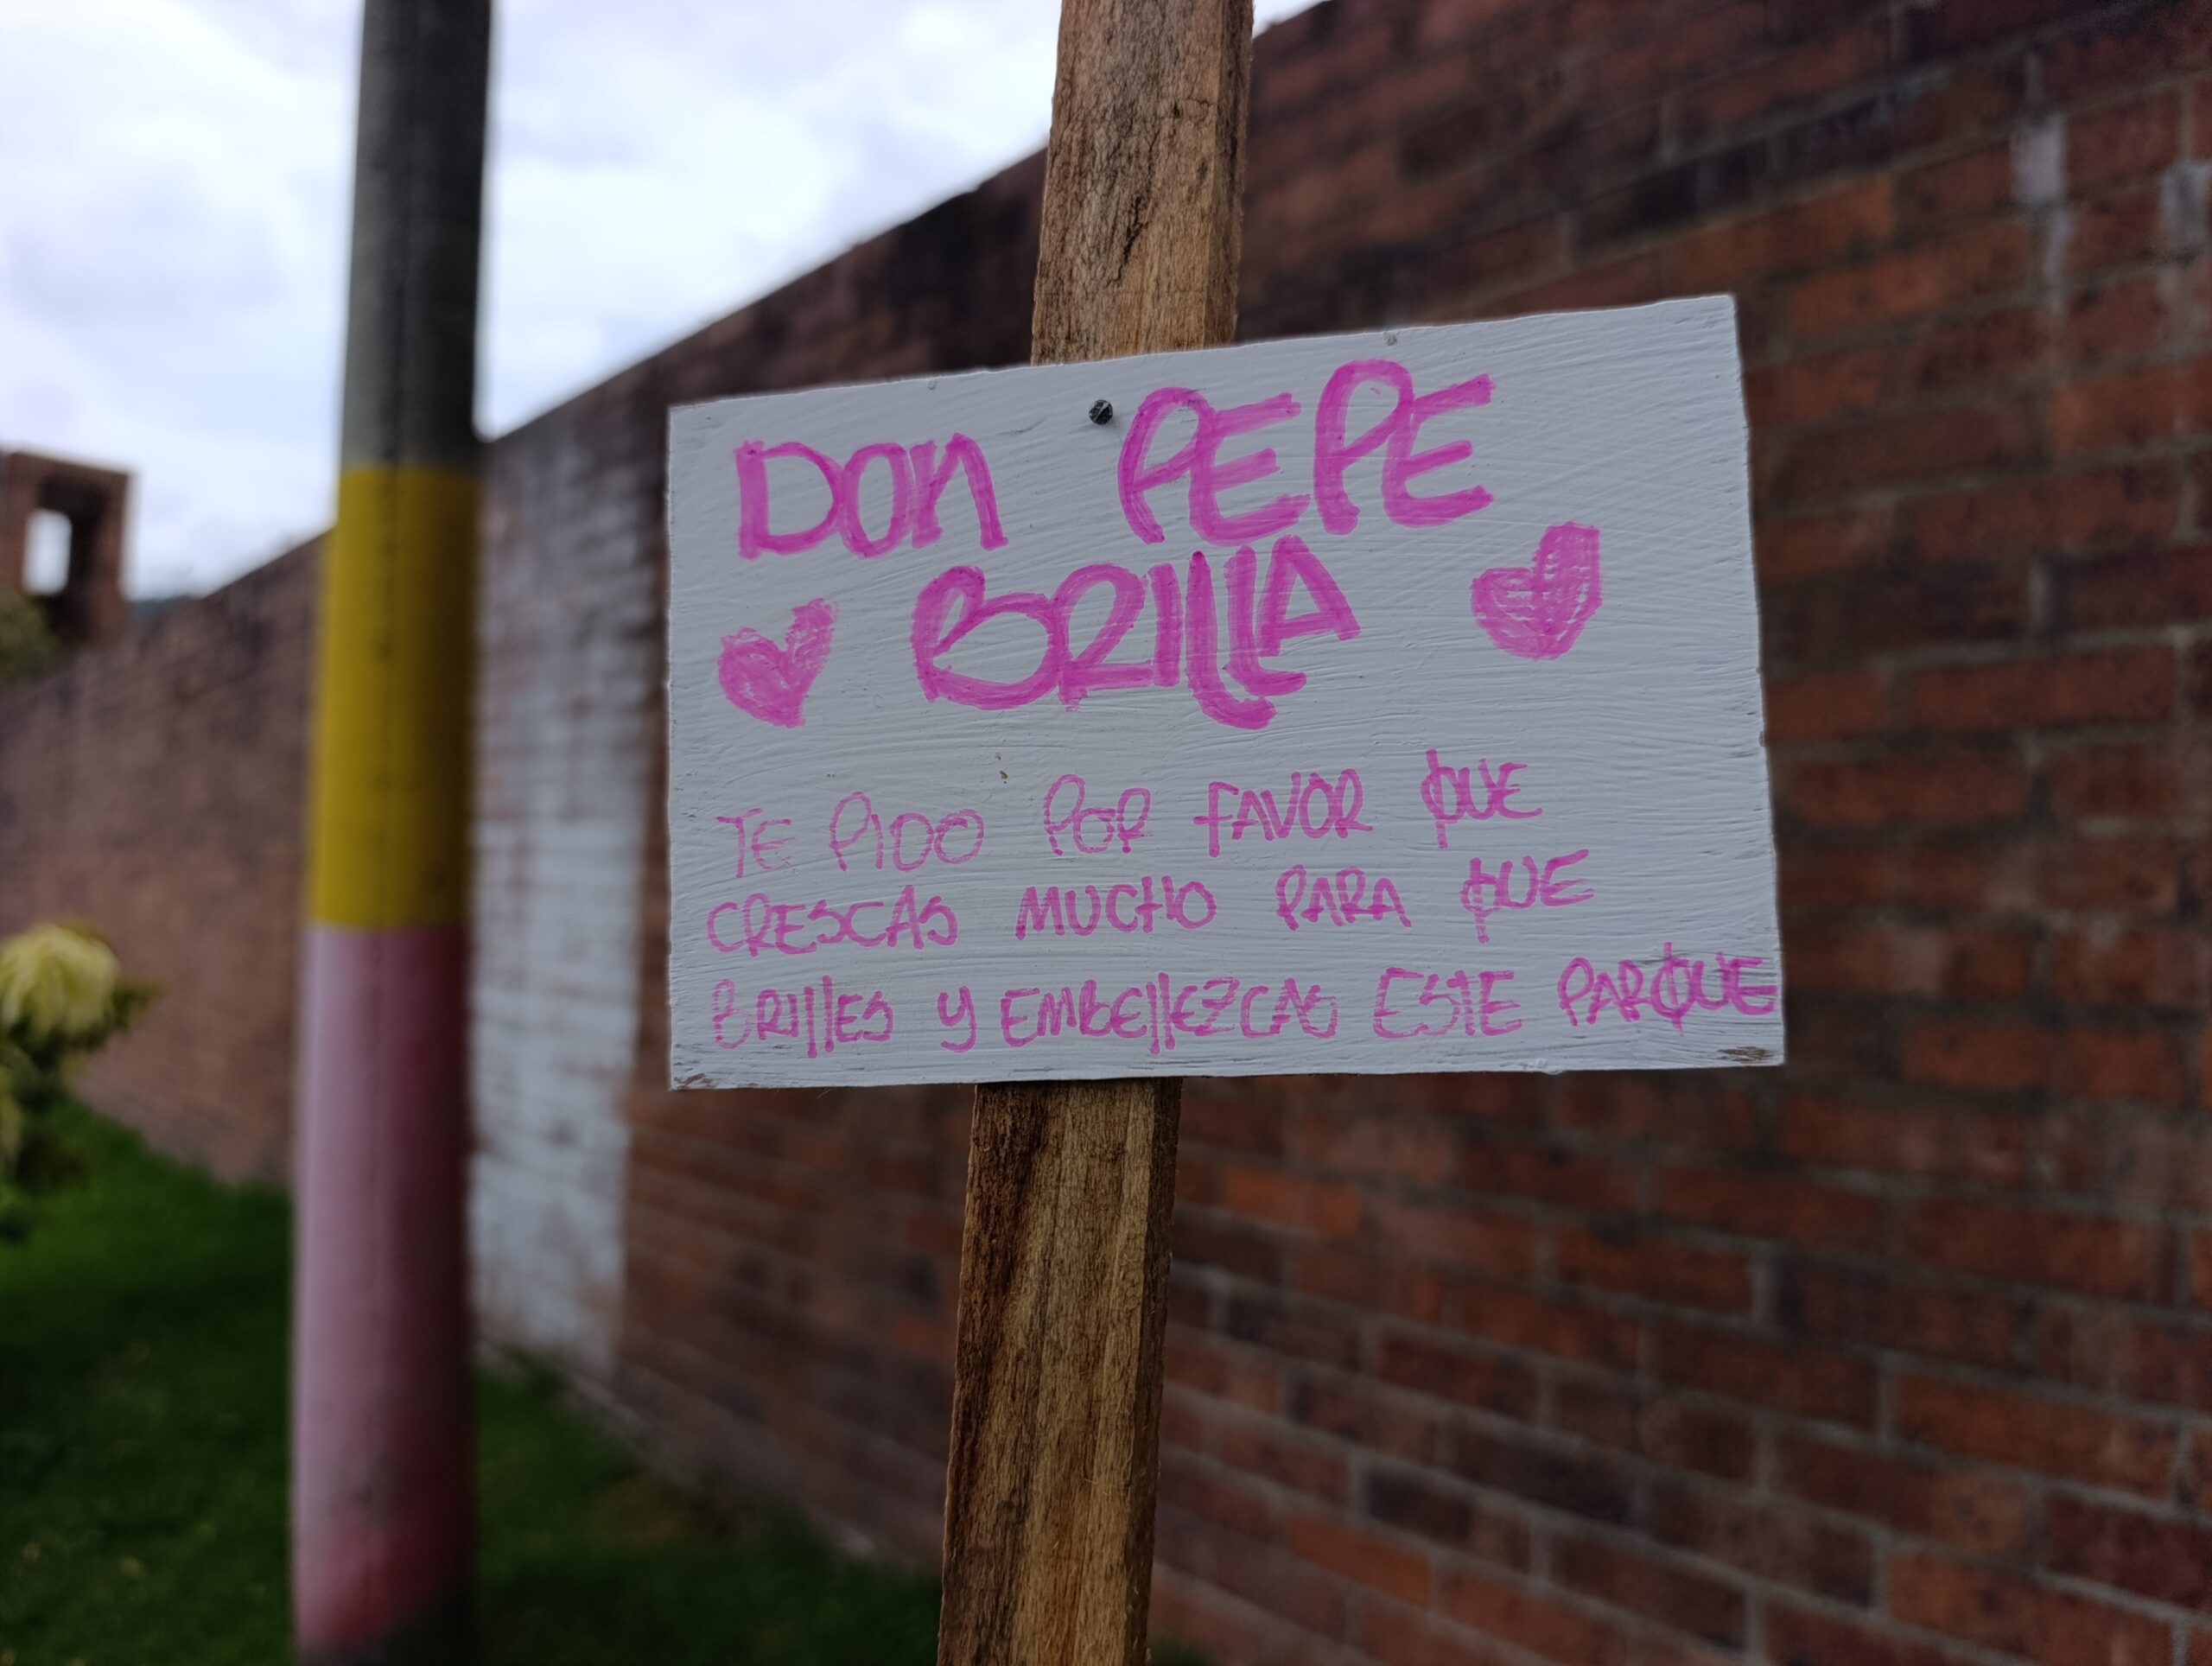 DON PEPE
BRILLA
TE PIDO POR FAVOR QUE
CRESCAS MUCHO PARA QUE
BRILLES Y EMBELLEZCAS ESTE PARQUE